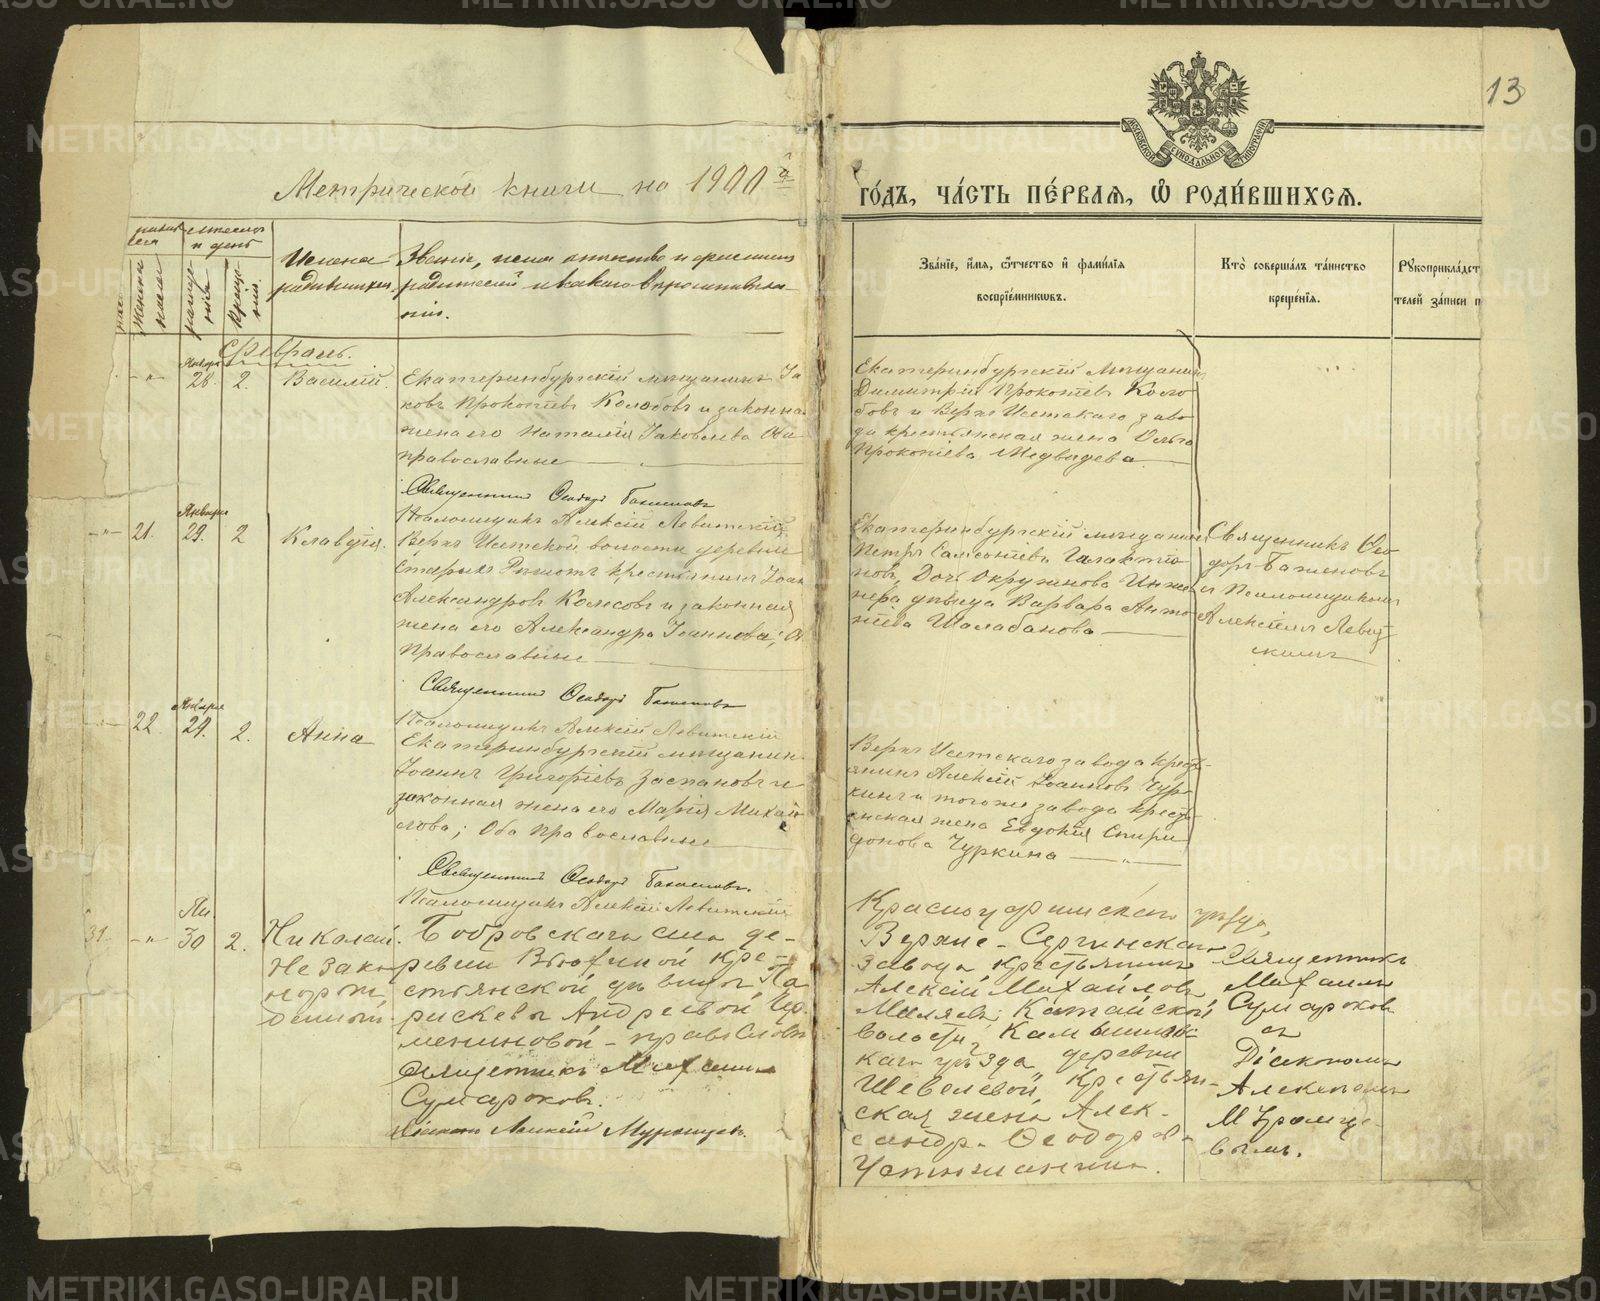 13
МОСКОВСКОЙ СѴНОДАЛЬНОЙ ТИПОГРАФІИ
Метрической книги на 1900 й
го́дъ, ча́сть пе́рвая, ѡ҆ роди́вшихсѧ.
месяцъ
и день
женска
крещенія.
Имена
родившихся
Званіе, имя отчество и фамилія
родителей и какого вѣроисповѣда-
нія.
Зва́нїе, и҆́мѧ, ѻ҆́тчество и҆ фами́лїѧ
воспрїе́мникѡвъ.
Кто̀ соверша́лъ та́инство
креще́нїѧ.
Рꙋкоприкла́дст
телей за́писи п
Февраль.
Января
28. 2. Василій.
Екатеринбургскій мѣщанинъ Іа
ковъ Прокопіевъ Колобовъ и законна
жена его Наталія Іаковлева Оба
православные
Священникъ Ѳеодоръ Баженовъ
Псаломщикъ Алексій Левитскій
Екатеринбургскій мѣщанинъ
Димитрій Прокопіевъ Коло
бовъ и Верхъ Исетскаго заво
да крестьянская жена Ольга
Прокопіева Медвѣдева
Января
21. 29. 2 Клавдія.
Верхъ Исетской волости деревни
Старыхъ Рѣшотъ крестьянинъ Іоан
Александровъ Колясовъ и законная
жена его Александра Іоаннова; О
Православные
Священникъ Ѳеодоръ Баженовъ
Псаломщикъ Алексій Левитскій
Екатеринбургскій мѣщанин
Петръ Самсоновъ Галактіо
новъ, Дочь Окружнова Инже
нера дѣвица Варвара Анто
ніева Шалабанова
Священникъ Ѳео
доръ Баженовъ
и Псаломщикомъ
Алексіемъ Левит
скимъ
Января
22. 29. 2. Анна
Екатеринбургскій мѣщанин
Іоаннъ Григоріевъ Заспановъ и
законная жена его Марія Михай
лова; Оба Православные
Священникъ Ѳеодоръ Баженовъ.
Псаломщикъ Алексій Левитскій
Верхъ Исетскаго завода кресть
янинъ Алексій Іоанновъ Чур
кинъ и того же завода кресть
янская жена Евдокія Спири
донова Чуркина
Ян.
31. 30 2. Николай.
Незако
норож
денный.
Бобровскаго села де-
ревни Вьюхиной кре-
стьянской дѣвицы Па
раскевы Андреевой Чер
мениновой - православн
Священникъ Михаилъ
Сумароковъ.
Діаконъ Алексій Мурзинцевъ.
Красноуфимскаго уѣзда,
Верхне-Сергинскаго
завода крестьянинъ
Алексій Михайловъ
Маляевъ; Катайской
волости, Камышловс
каго уѣзда деревни
Шевелевой, крестьян-
ская жена Алек-
сандр. Ѳеодорова
Устьянцева.
Священникъ
Михаилъ
Сумароков
съ
Діакономъ
Алексѣемъ